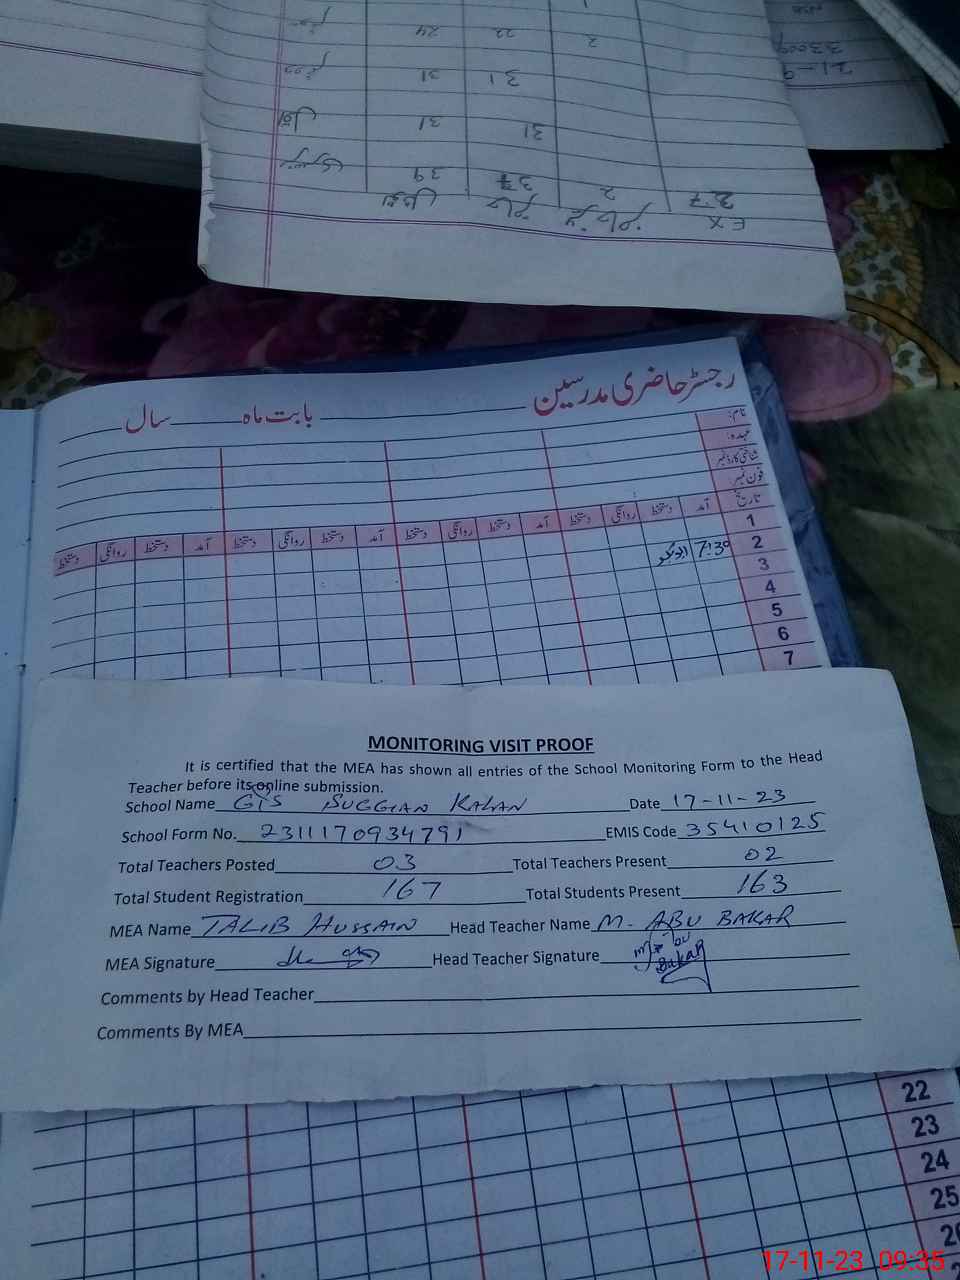 24 22 2
31 31
31 31
39 37 2 27
حاضر غیر حاضر EX
21-9
33009
رجسٹر حاضری مدرسین بابت ماہ سال
نام:
عہدہ:
شناختی کارڈ نمبر
فون نمبر:
تاریخ آمد دستخط روانگی دستخط آمد دستخط روانگی دستخط آمد دستخط روانگی دستخط آمد دستخط روانگی دستخط
1
2 7:30 ابوبکر
3
4
5
6
7
MONITORING VISIT PROOF
It is certified that the MEA has shown all entries of the School Monitoring Form to the Head
Teacher before its online submission.
School Name GPS SUGGIAN KALAN Date 17-11-23
School Form No. 2311170934791 EMIS Code 35410125
Total Teachers Posted 03 Total Teachers Present 02
Total Student Registration 167 Total Students Present 163
MEA Name TALIB HUSSAIN Head Teacher Name M. ABU BAKAR
MEA Signature Head Teacher Signature M Abu
Bakar
Comments by Head Teacher
Comments By MEA
22
23
24
25
26
17-11-23 09:35